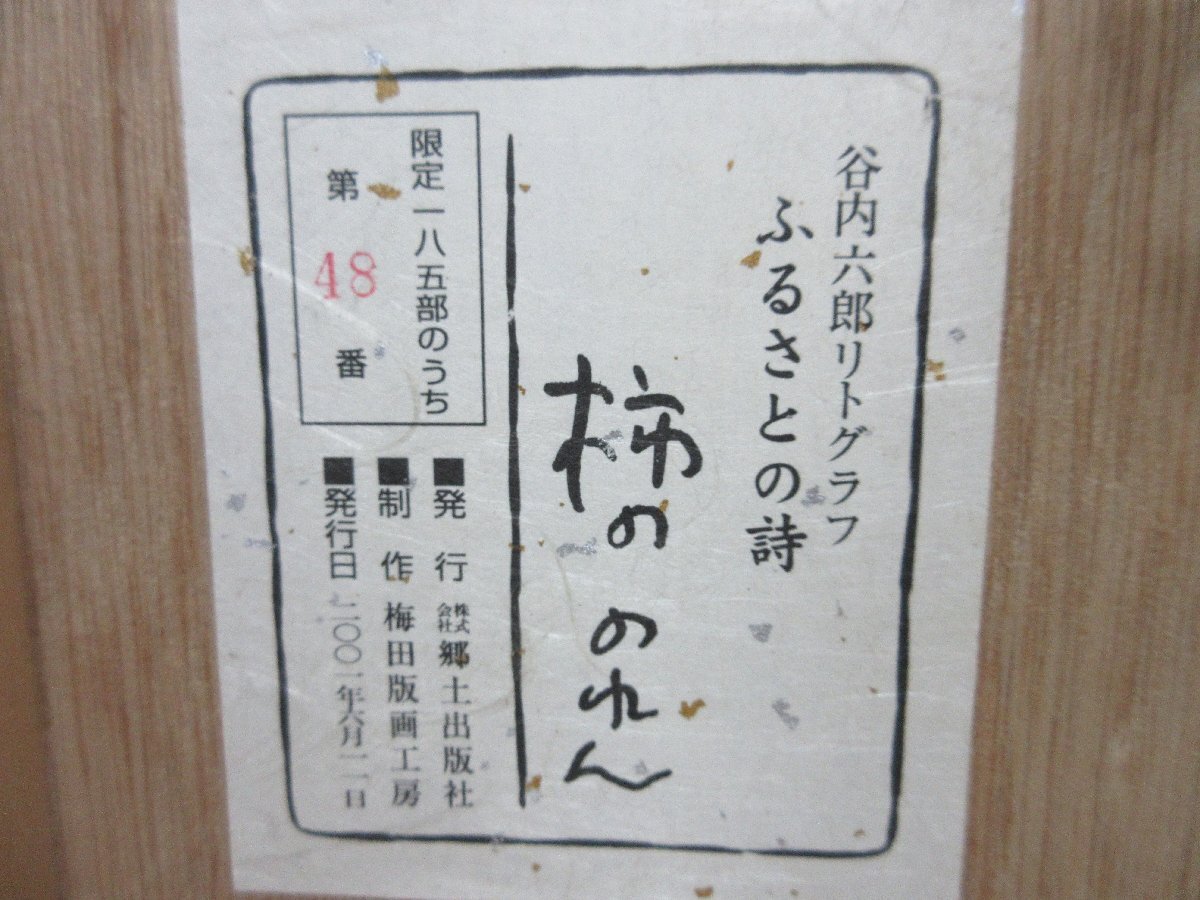 谷内六郎リトグラフ
ふるさとの詩
柿ののれん
限定一八五部のうち
第48番
■発行 株式会社郷土出版社
■制作 梅田版画工房
■発行日 二〇〇一年六月一一日